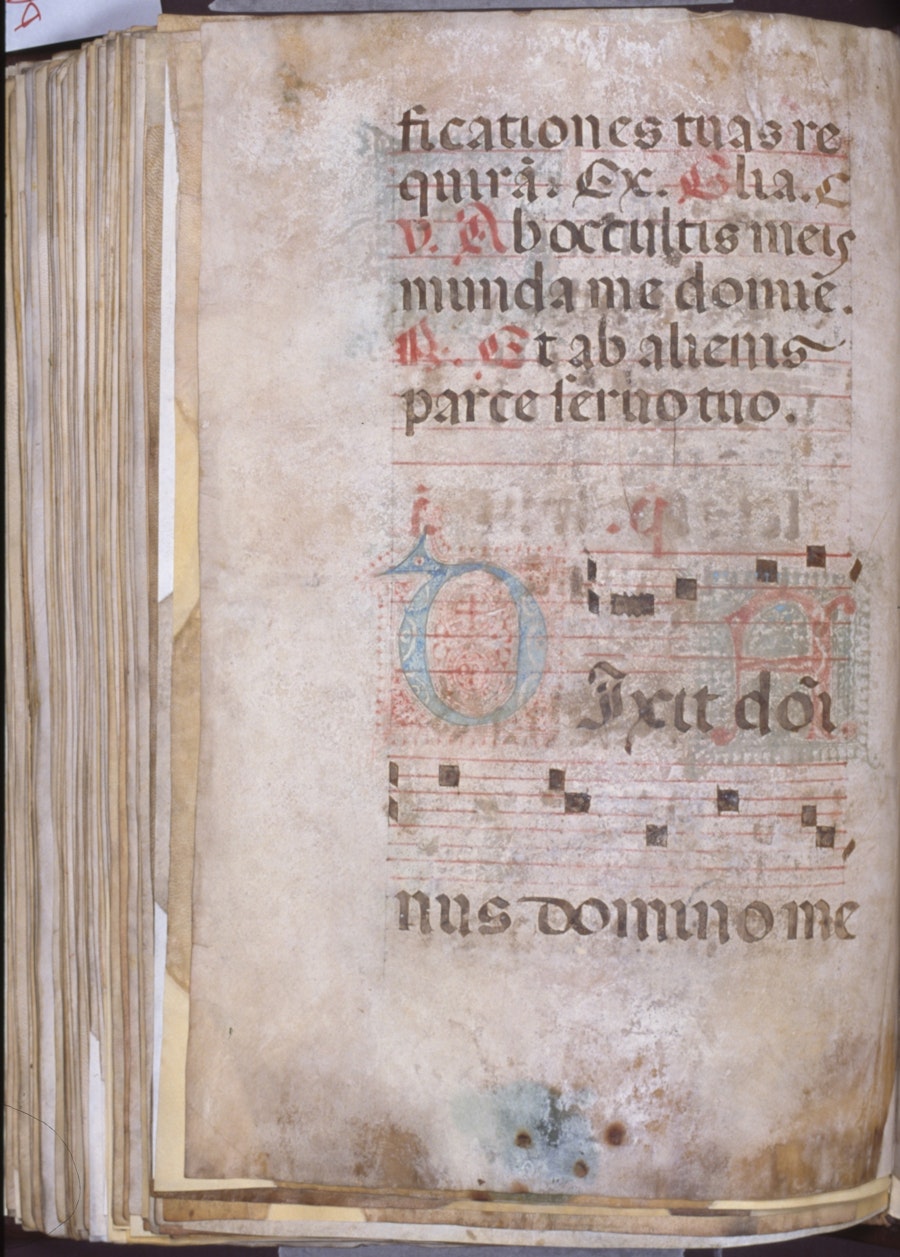 ficationes tuas re
quirā. Ex. Glia. C
v. Ab occultis meis
munda me domiē.
R. Et ab alienis
parce seruo tuo.
DIxit dōi
nus domino me